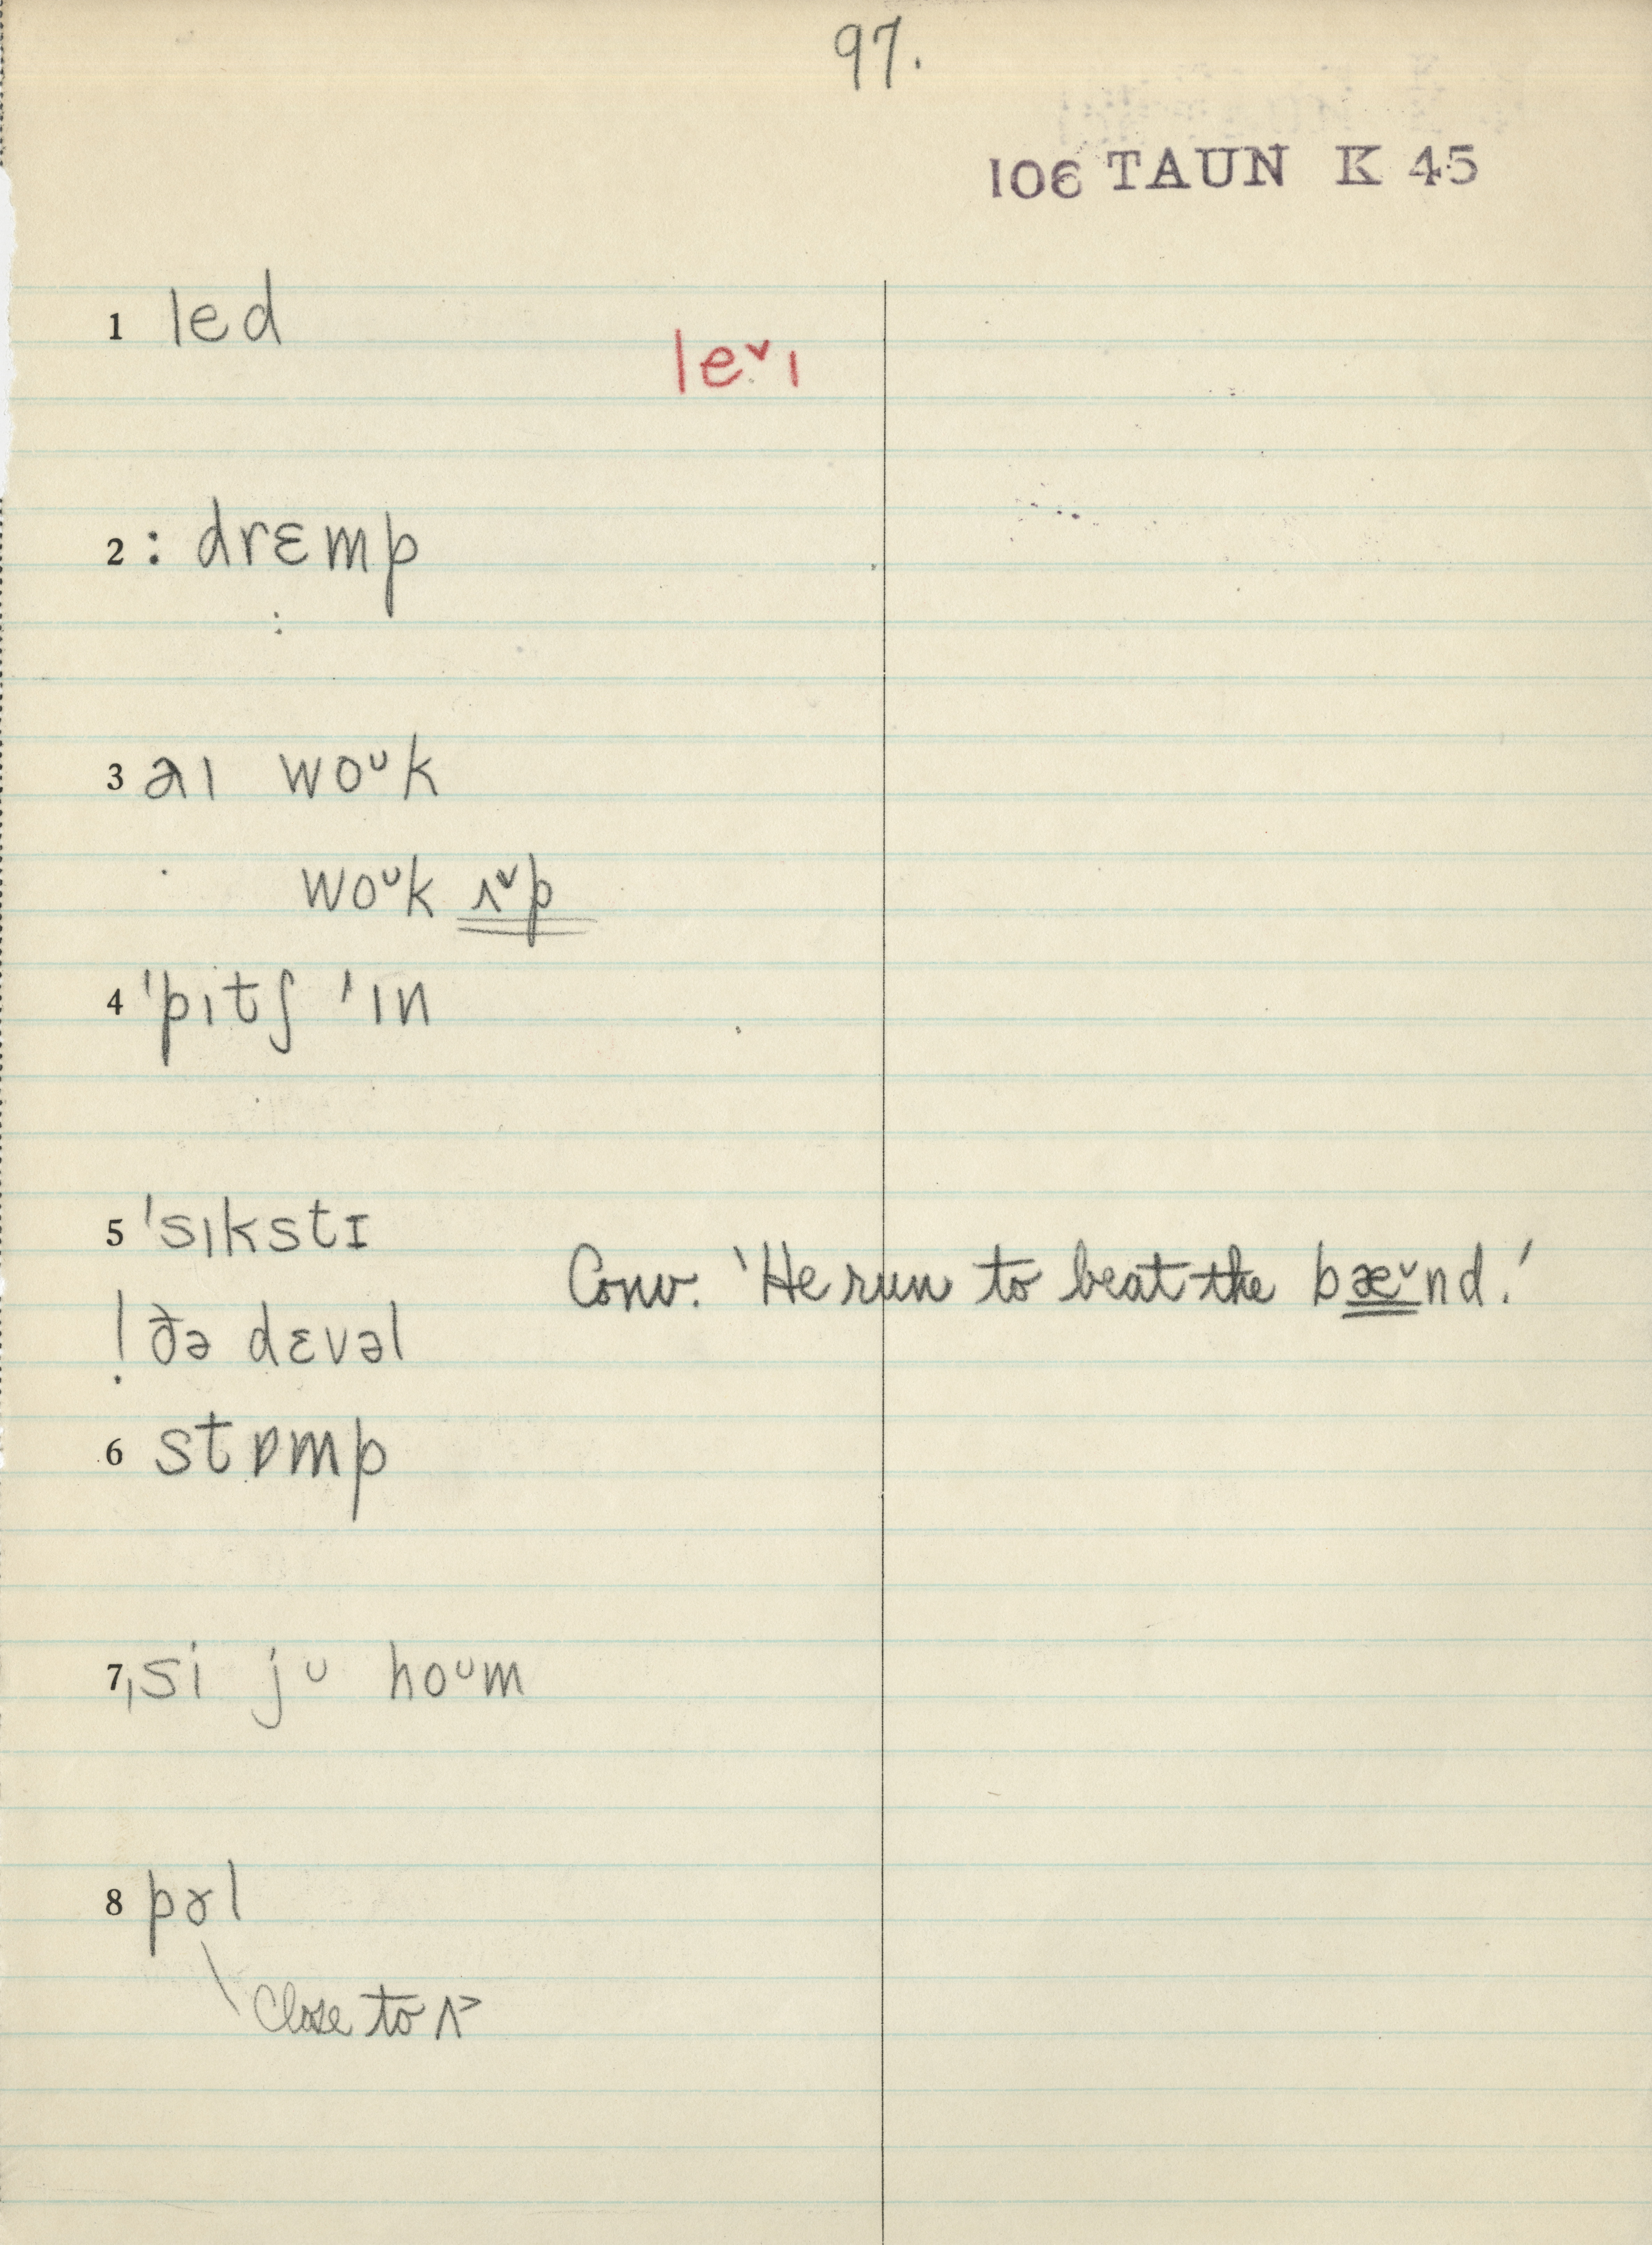 97.
106 TAUN K 45
1 led
leˇɪ
2 : drɛmp
:
3 aɪ woᴜk
woᴜk ʌˇp
4 ˈpɪtʃ ˈɪn
5 ˈsɪkstɪ
Conv. 'He run to beat the bæˇnd.'
! ðə dɛvəl
6 stɒmp
7 ˌsi jᴜ hoᴜm
8 pɤl
Close to ʌ˃